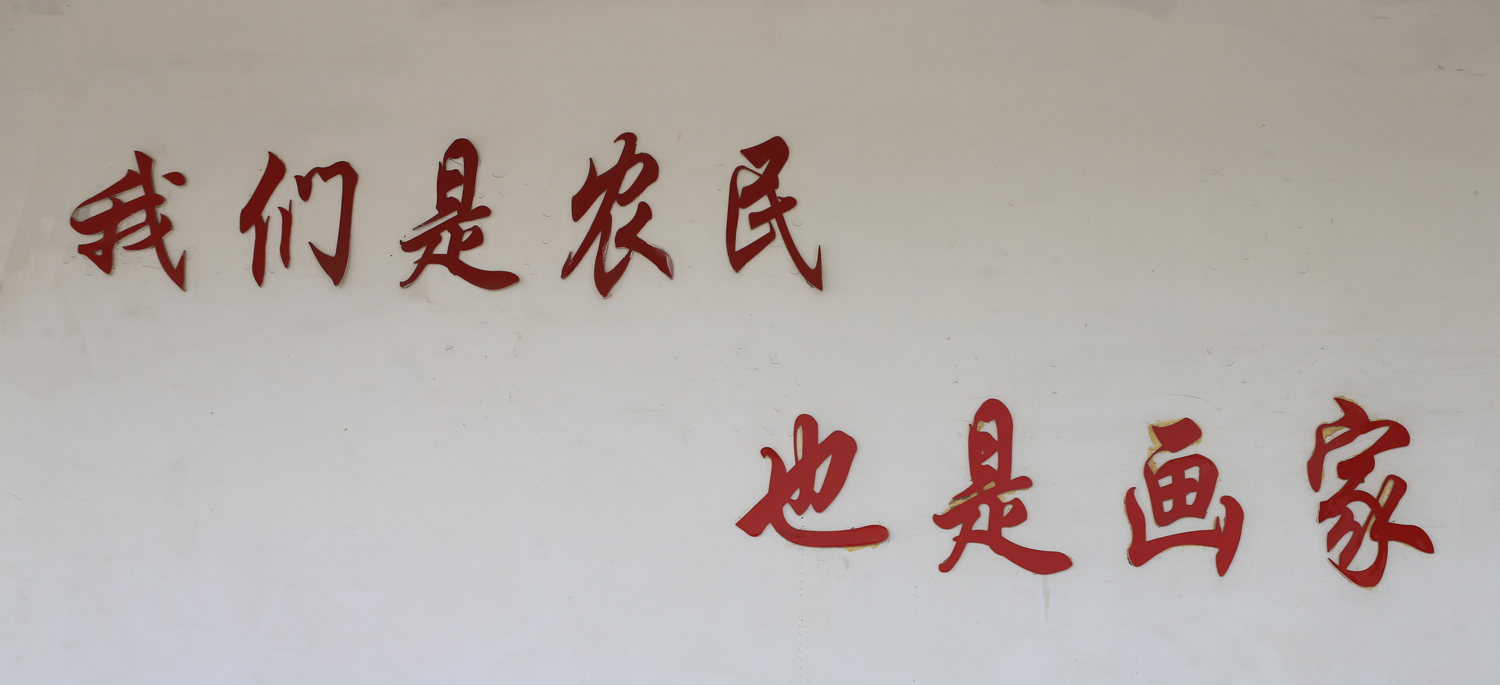 我们是农民
也是画家